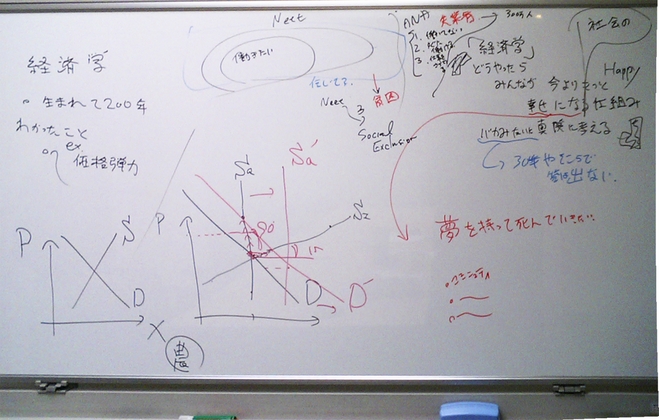 経済学
○ 生まれて200年
わかったこと
ex.
価格弾力
P
S
D
X
農
Neet
働きたい
P
Sa
Sa'
S2
D
D'
Neet
3
Social
Exclusion
AND
失業者
30万人
1. 働いてない
2.
3.
「経済学」
どうやったら
みんなが 今よりもっと
幸せになる仕組み
バカみたいに真険に考える
社会の
Happy
30年やそこらで
答は出ない.
夢を持って死んでいきたい
コミュニティ